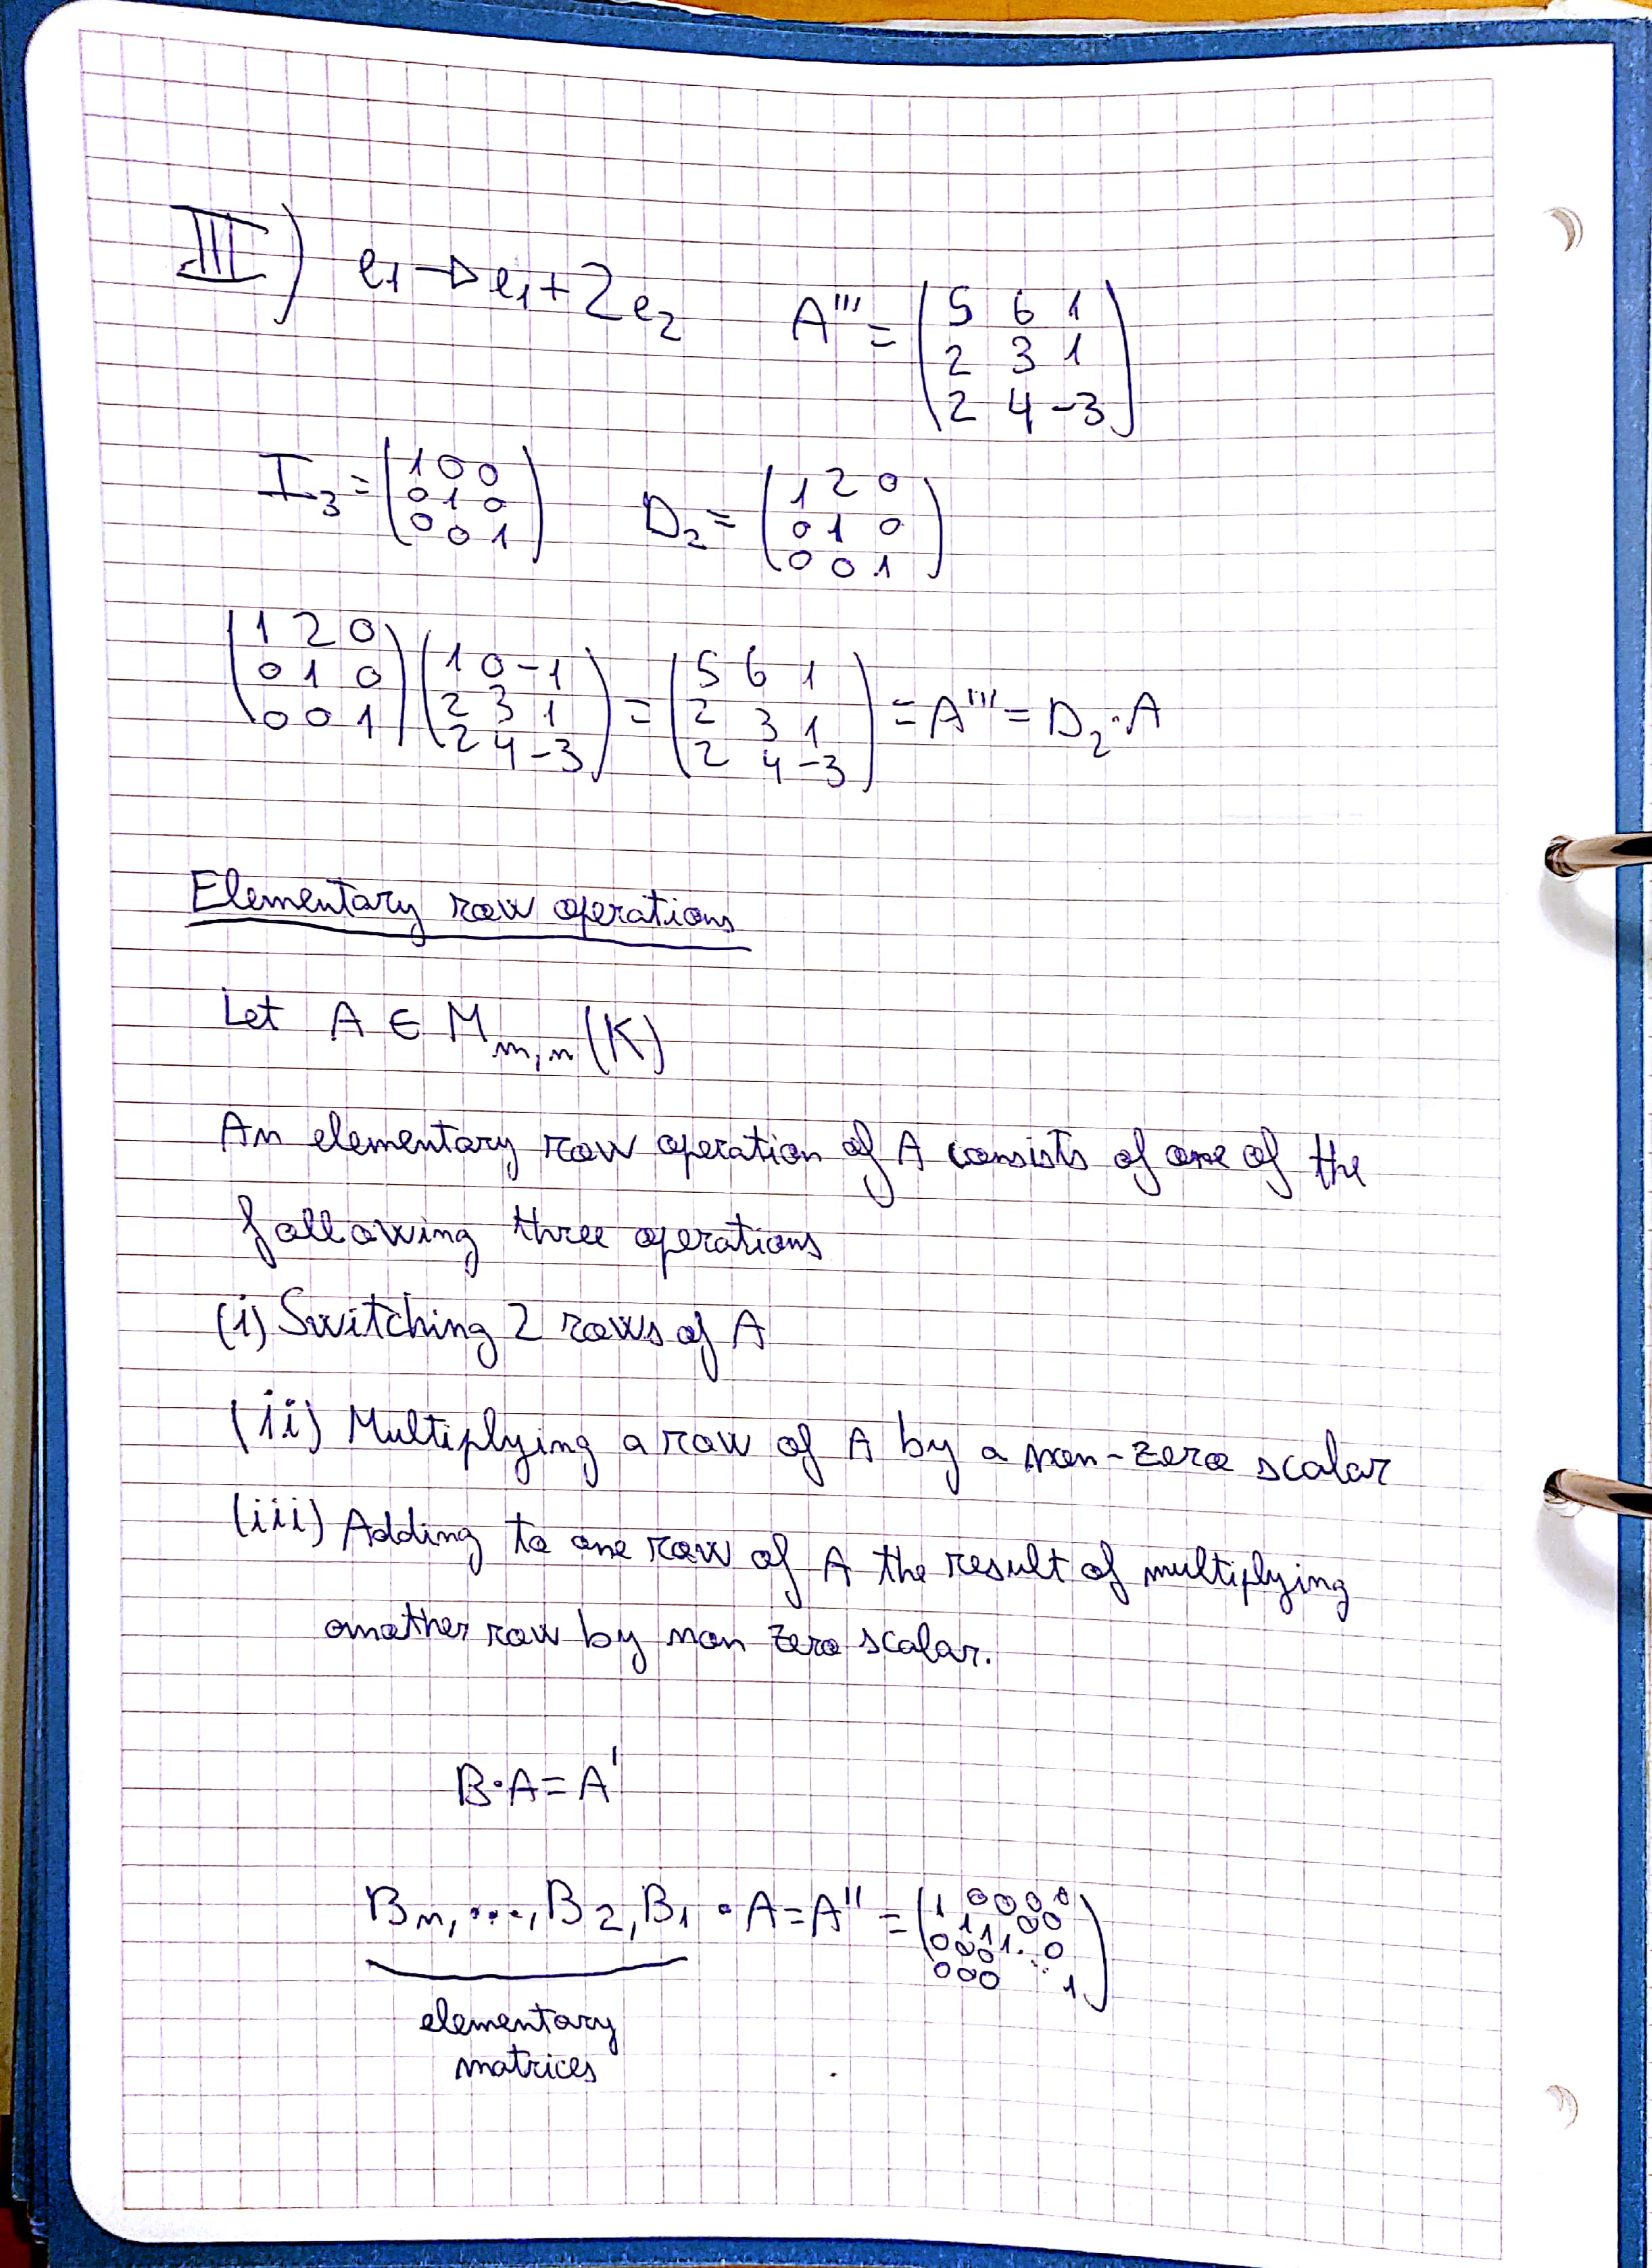 III) e₁→e₁+2e₂ A''' = (5 6 1
2 3 1
2 4 -3)
I₃ = (1 0 0
0 1 0
0 0 1) D₂ = (1 2 0
0 1 0
0 0 1)
(1 2 0
0 1 0
0 0 1) (1 0 -1
2 3 1
2 4 -3) = (5 6 1
2 3 1
2 4 -3) = A''' = D₂·A
Elementary row operations
Let A ∈ M_{m,n}(K)
An elementary row operation of A consists of one of the
following three operations
(i) Switching 2 rows of A
(ii) Multiplying a row of A by a non-zero scalar
(iii) Adding to one row of A the result of multiplying
another row by non zero scalar.
B·A=A'
Bₙ,...,B₂,B₁ · A = A'' = (1 0 0 0 0
1 1 1 0 0
0 0 0 1 . 0
0 0 0 ⋱ 1)
elementary
matrices